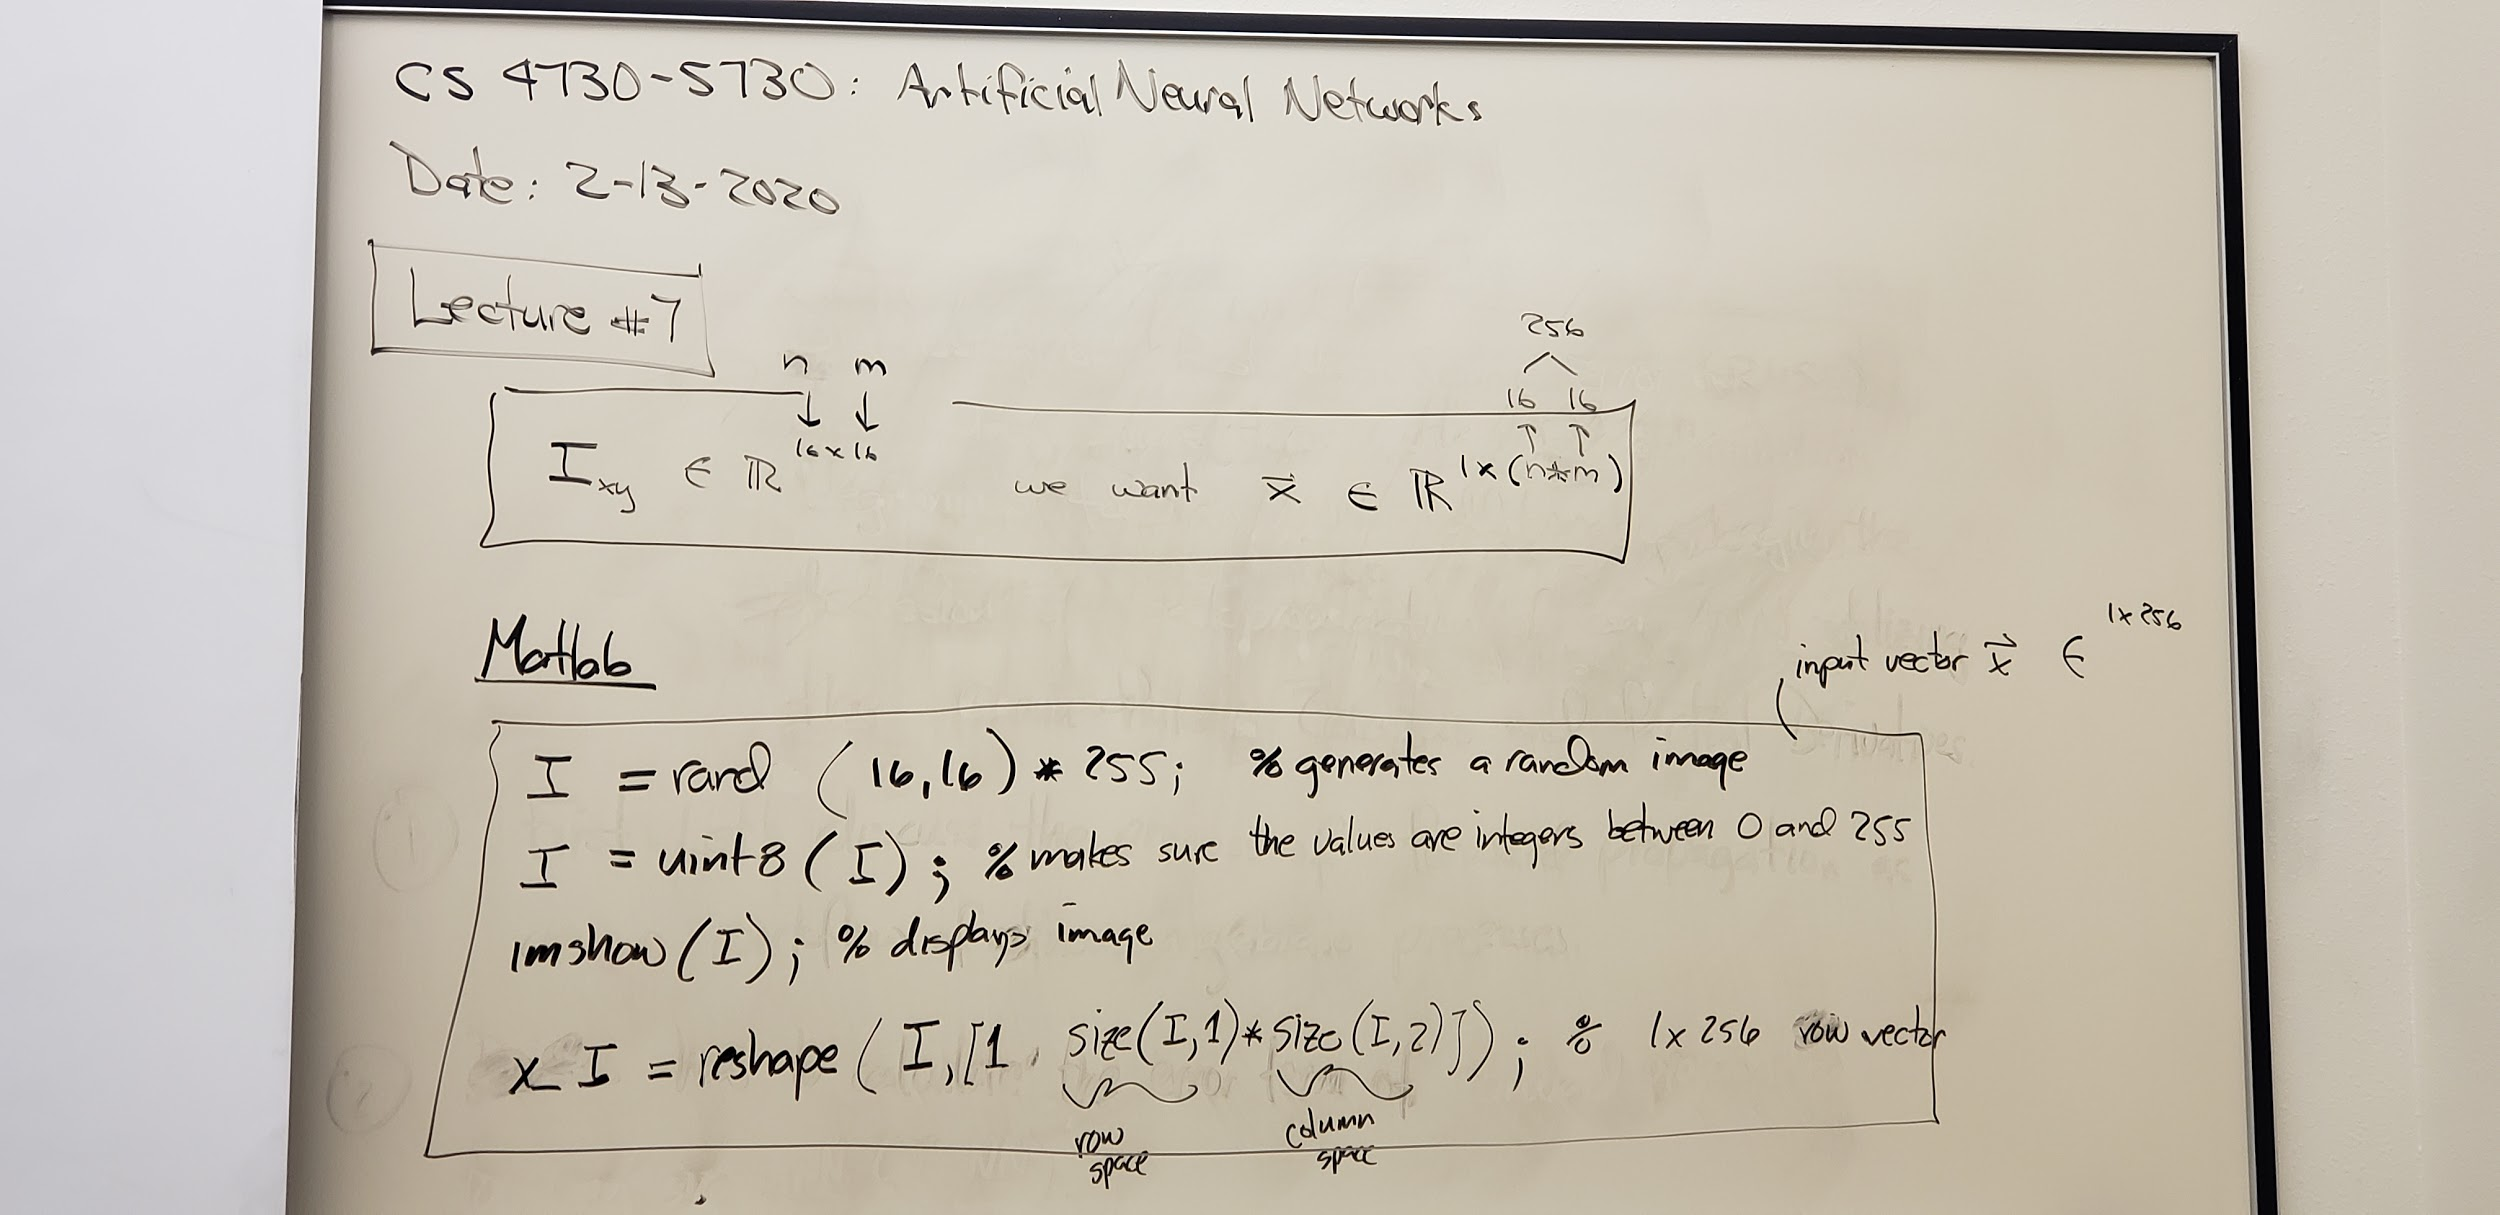 CS 4730-5730: Artificial Neural Networks
Date: 2-13-2020
Lecture #7
n m
256
16 16
I_xy ∈ ℝ^16x16 we want x⃗ ∈ ℝ^1x(n*m)
Matlab
input vector x⃗ ∈ ^1x256
I = rand (16,16) * 255; % generates a random image
I = uint8 (I); % makes sure the values are integers between 0 and 255
imshow (I); % displays image
x_I = reshape (I, [1 size(I,1)*size(I,2)]); % 1x256 row vector
row space
column space